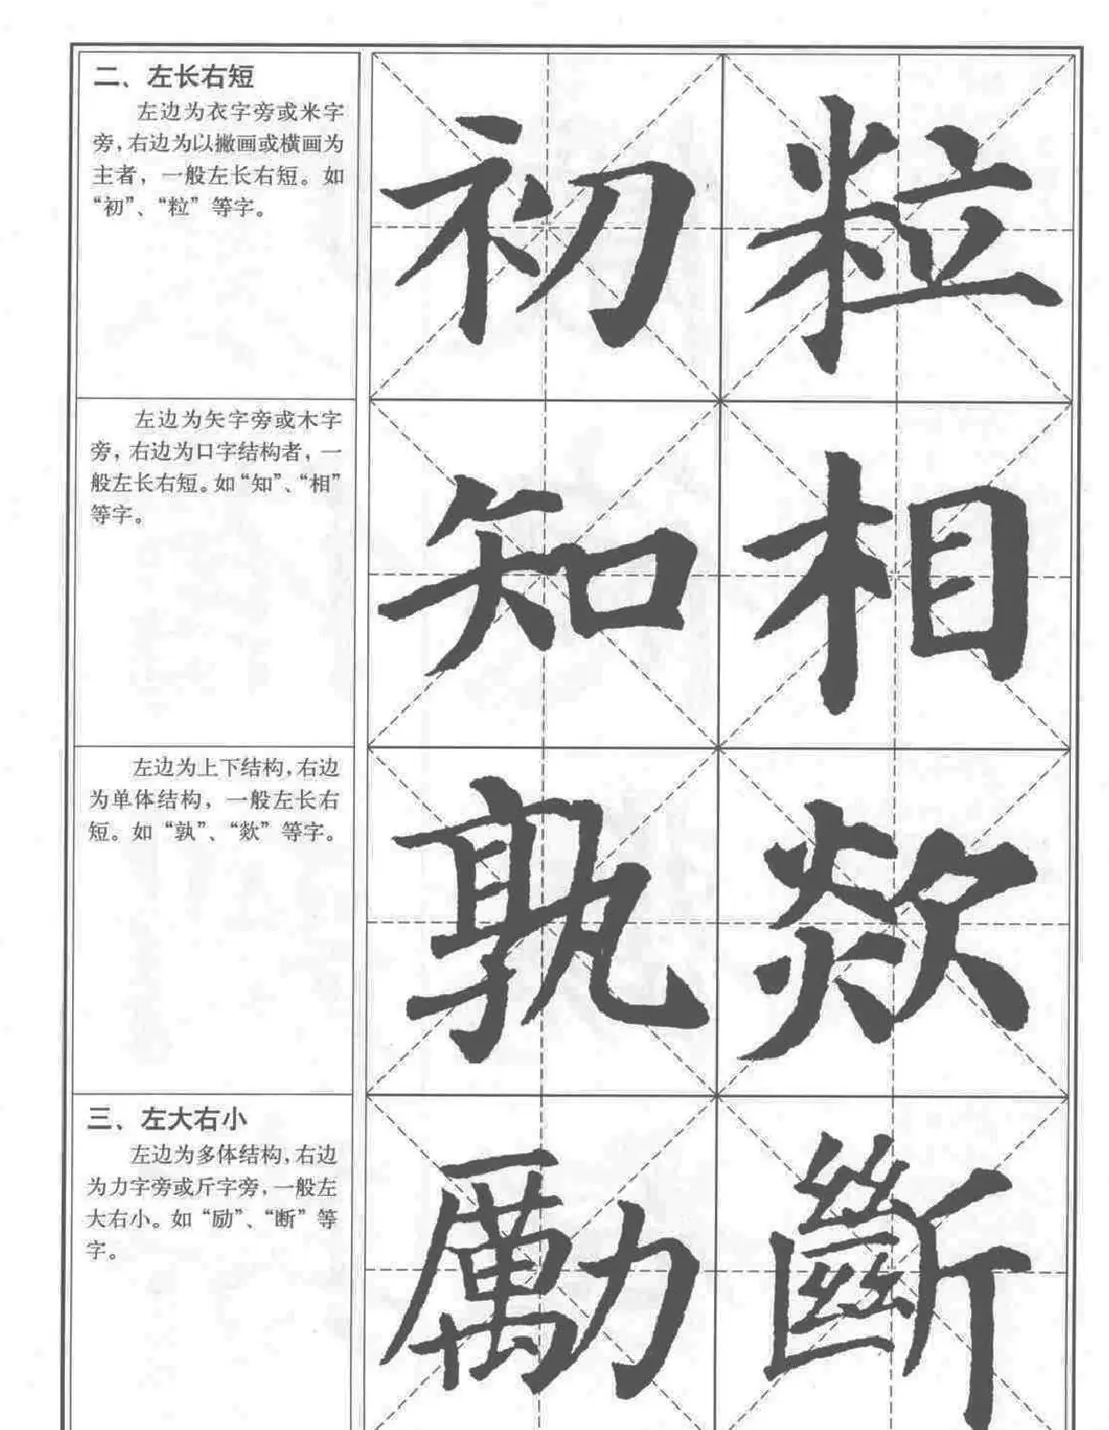 二、左长右短
左边为衣字旁或米字
旁，右边为以撇画或横画为
主者，一般左长右短。如
“初”、“粒”等字。
初 粒
左边为矢字旁或木字
旁，右边为口字结构者，一
般左长右短。如“知”、“相”
等字。
知 相
左边为上下结构，右边
为单体结构，一般左长右
短。如“孰”、“欻”等字。
孰 欻
三、左大右小
左边为多体结构，右边
为力字旁或斤字旁，一般左
大右小。如“励”、“断”等
字。
勵 斷